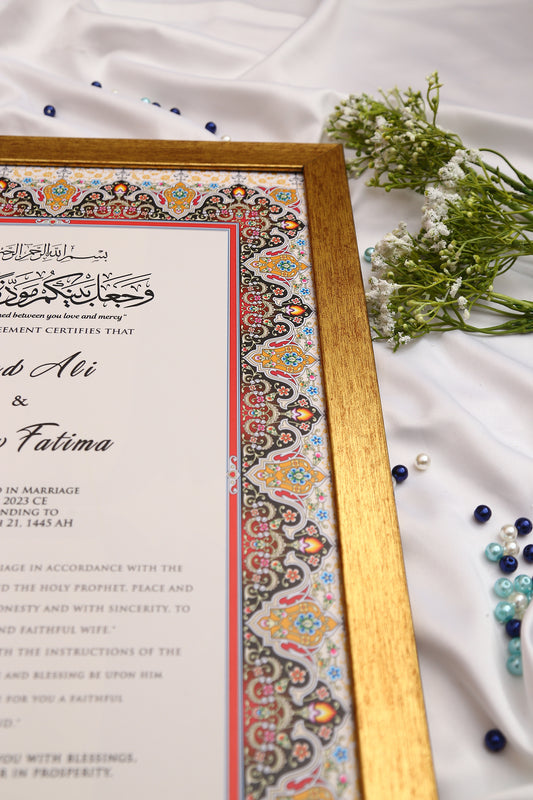 بسم الله الرحمن الرحيم
وَجَعَلَ بَيْنَكُم مَّوَدَّةً
between you love and mercy"
EEMENT CERTIFIES THAT
Ali
&
Fatima
IN MARRIAGE
2023 CE
NDING TO
21, 1445 AH
IAGE IN ACCORDANCE WITH THE
THE HOLY PROPHET, PEACE AND
ONESTY AND WITH SINCERITY, TO
ND FAITHFUL WIFE."
TH THE INSTRUCTIONS OF THE
AND BLESSING BE UPON HIM
FOR YOU A FAITHFUL
YOU WITH BLESSINGS,
IN PROSPERITY.